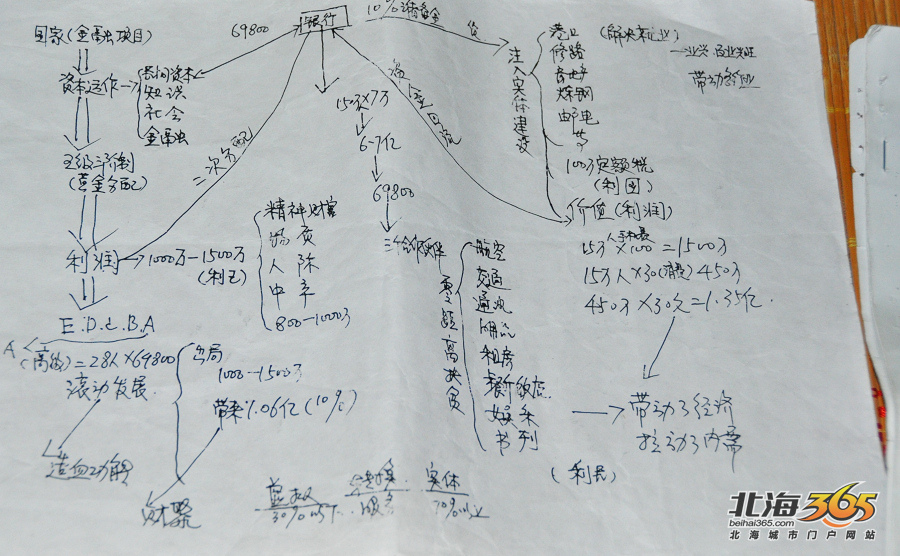 银行
10%
69800
国家(金融项目)
资本运作
民间资本
知识
社会
金融
五级三阶制
(奖金分配)
二次分配
利润
1000万-1500万
(利己)
精神财富
物质
人际
中辛
800-1000万
E.D.C.B.A
A
(高级)=28人×69800
滚动发展.
造血功能
出局
1000-1500万
带来1.06亿(10%)
财聚
15万×7万
6-7亿
69800
三个合作伙伴
航空
交通
通讯
租房
餐饮
娱乐
书刊
资金回流
贷
注入实体建设
港口
修路
房地产
炼钢
邮电
等
(解决就业)
带动经业
100万定额税
(利国)
价值(利润)
15万×100=1500万
15万人×30(消费)450万
450万×30天=1.35亿.
带动了经济
拉动了内需
(利民)
虚拟
30%以下
服务
实体
70%以上
北海365
beihai365.com
北海城市门户网站